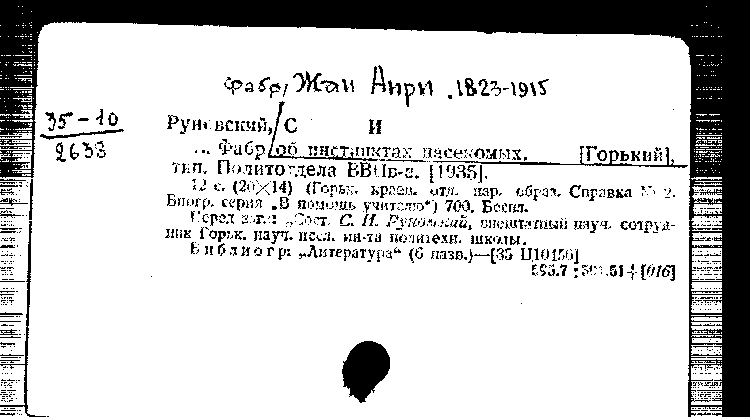 Фабр, Жан Анри . 1823-1915
35-10
2633
Руновский, С И
... Фабр об инстинктах насекомых. [Горький],
тип. Политотдела ВВПв-с. [1935].
12 с. (20×14) (Горьк. краев. отд. нар. образ. Справка № 2.
Биогр. серия „В помощь учителю“) 700. Беспл.
Перед загл: „Сост. С. И. внештатный науч. сотруд-
ник Горьк. науч. иссл. ин-та политехн. школы.
Библиогр: „Литература“ (6 назв.)—[35 Ц10456]
[016]